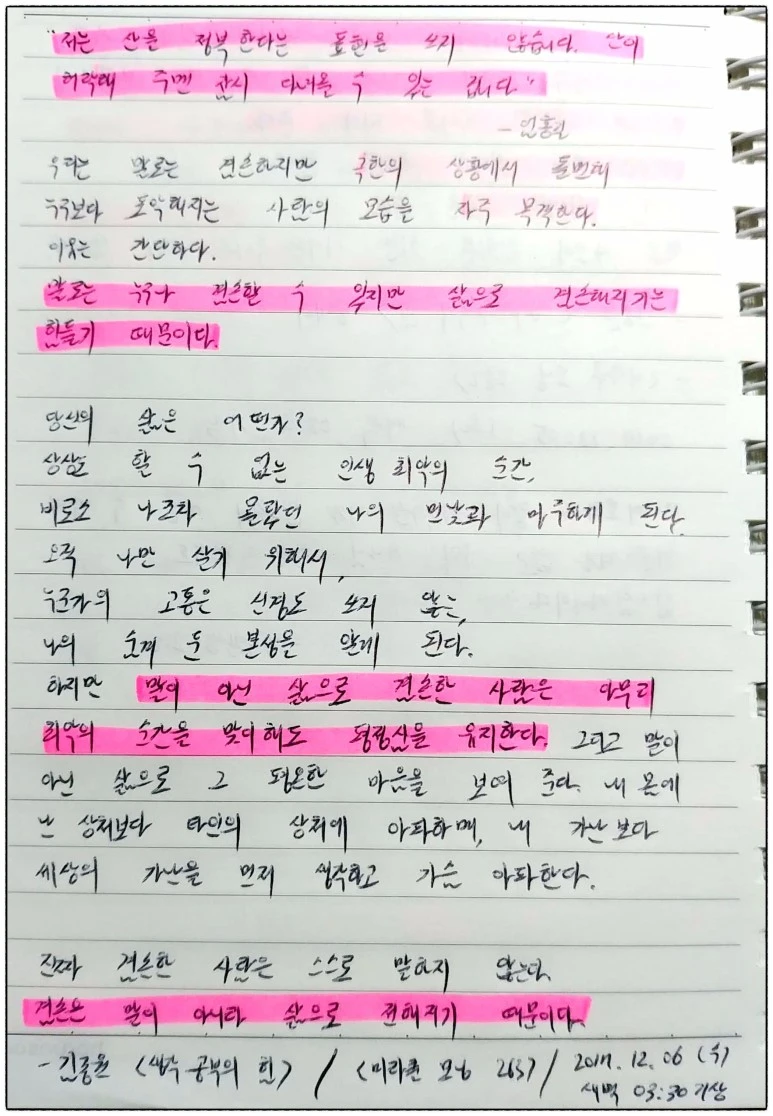 "저는 산을 정복한다는 표현을 쓰지 않습니다. 산이
허락해 주면 잠시 다녀올 수 있는 겁니다."
- 엄홍길
우리는 말로는 겸손하지만 극한의 상황에서 돌변해
누구보다 포악해지는 사람의 모습을 자주 목격한다.
이유는 간단하다.
말로는 누구나 겸손할 수 있지만 삶으로 겸손해지기는
힘들기 때문이다.
당신의 삶은 어떤가?
상상도 할 수 없는 인생 최악의 순간,
비로소 나조차 몰랐던 나의 민낯과 마주하게 된다.
오직 나만 살기 위해서,
누군가의 고통은 신경도 쓰지 않는,
나의 숨겨 둔 본성을 알게 된다.
하지만 말이 아닌 삶으로 겸손한 사람은 아무리
최악의 순간을 맞이해도 평정심을 유지한다. 그리고 말이
아닌 삶으로 그 평온한 마음을 보여 준다. 내 몸에
난 상처보다 타인의 상처에 아파하며, 내 가난보다
세상의 가난을 먼저 생각하고 가슴 아파한다.
진짜 겸손한 사람은 스스로 말하지 않는다.
겸손은 말이 아니라 삶으로 전해지기 때문이다.
- 김종원 <생각 공부의 힘> / <미라클 모닝 263> / 2017. 12. 06 (수)
새벽 03:30 기상